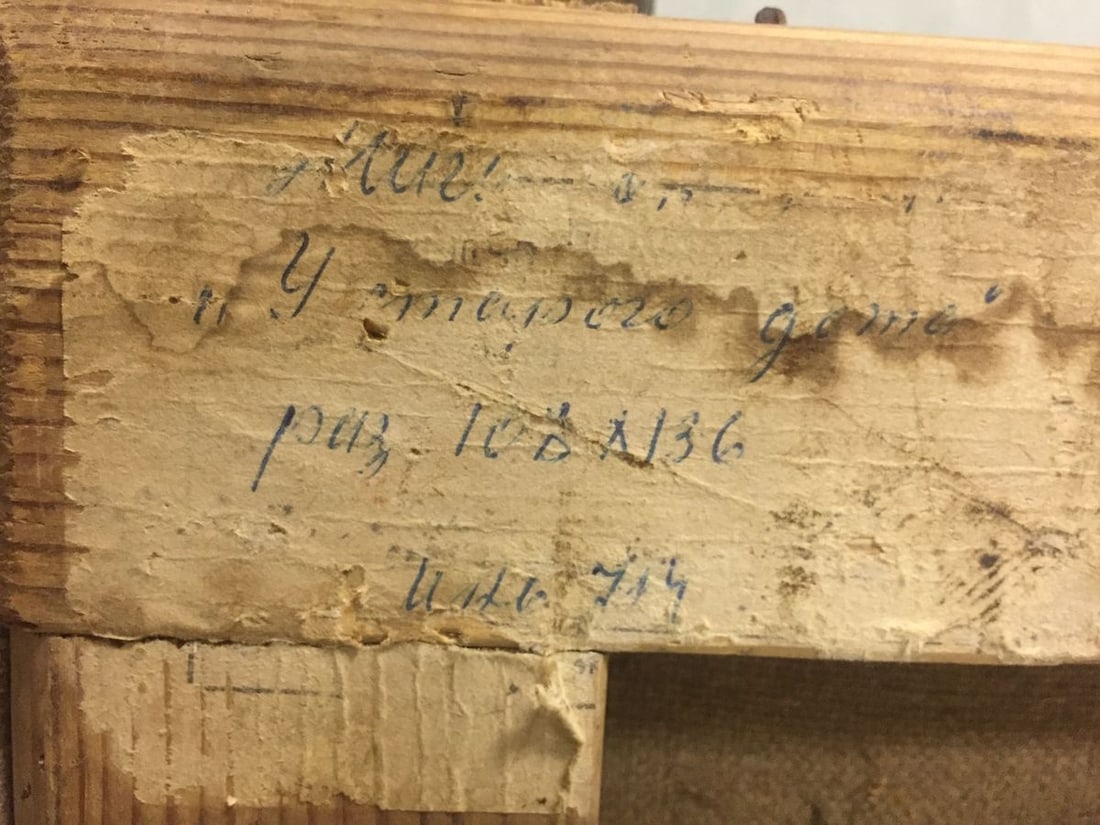 „У старого дота"
раз. 108 х 136
инв 714